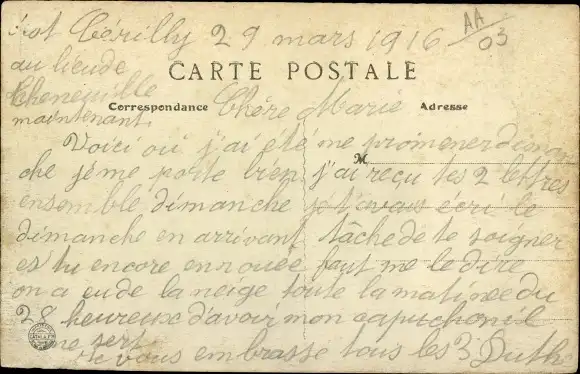 Cérilly 29 mars 1916 AA/03
au lieu de
CARTE POSTALE
Cheneuille
Correspondance Chère Marie Adresse
maintenant.
Voici où j'ai été me promener diman
M
che je me porte bien j'ai reçu tes 2 lettres
ensemble dimanche je t'avais écri le
dimanche en arrivant tâche de te soigner
es tu encore enrouée faut me le dire
on a eu de la neige toute la matinée du
28 heureux d'avoir mon capuchon il
me sert
Je vous embrasse tous les 3